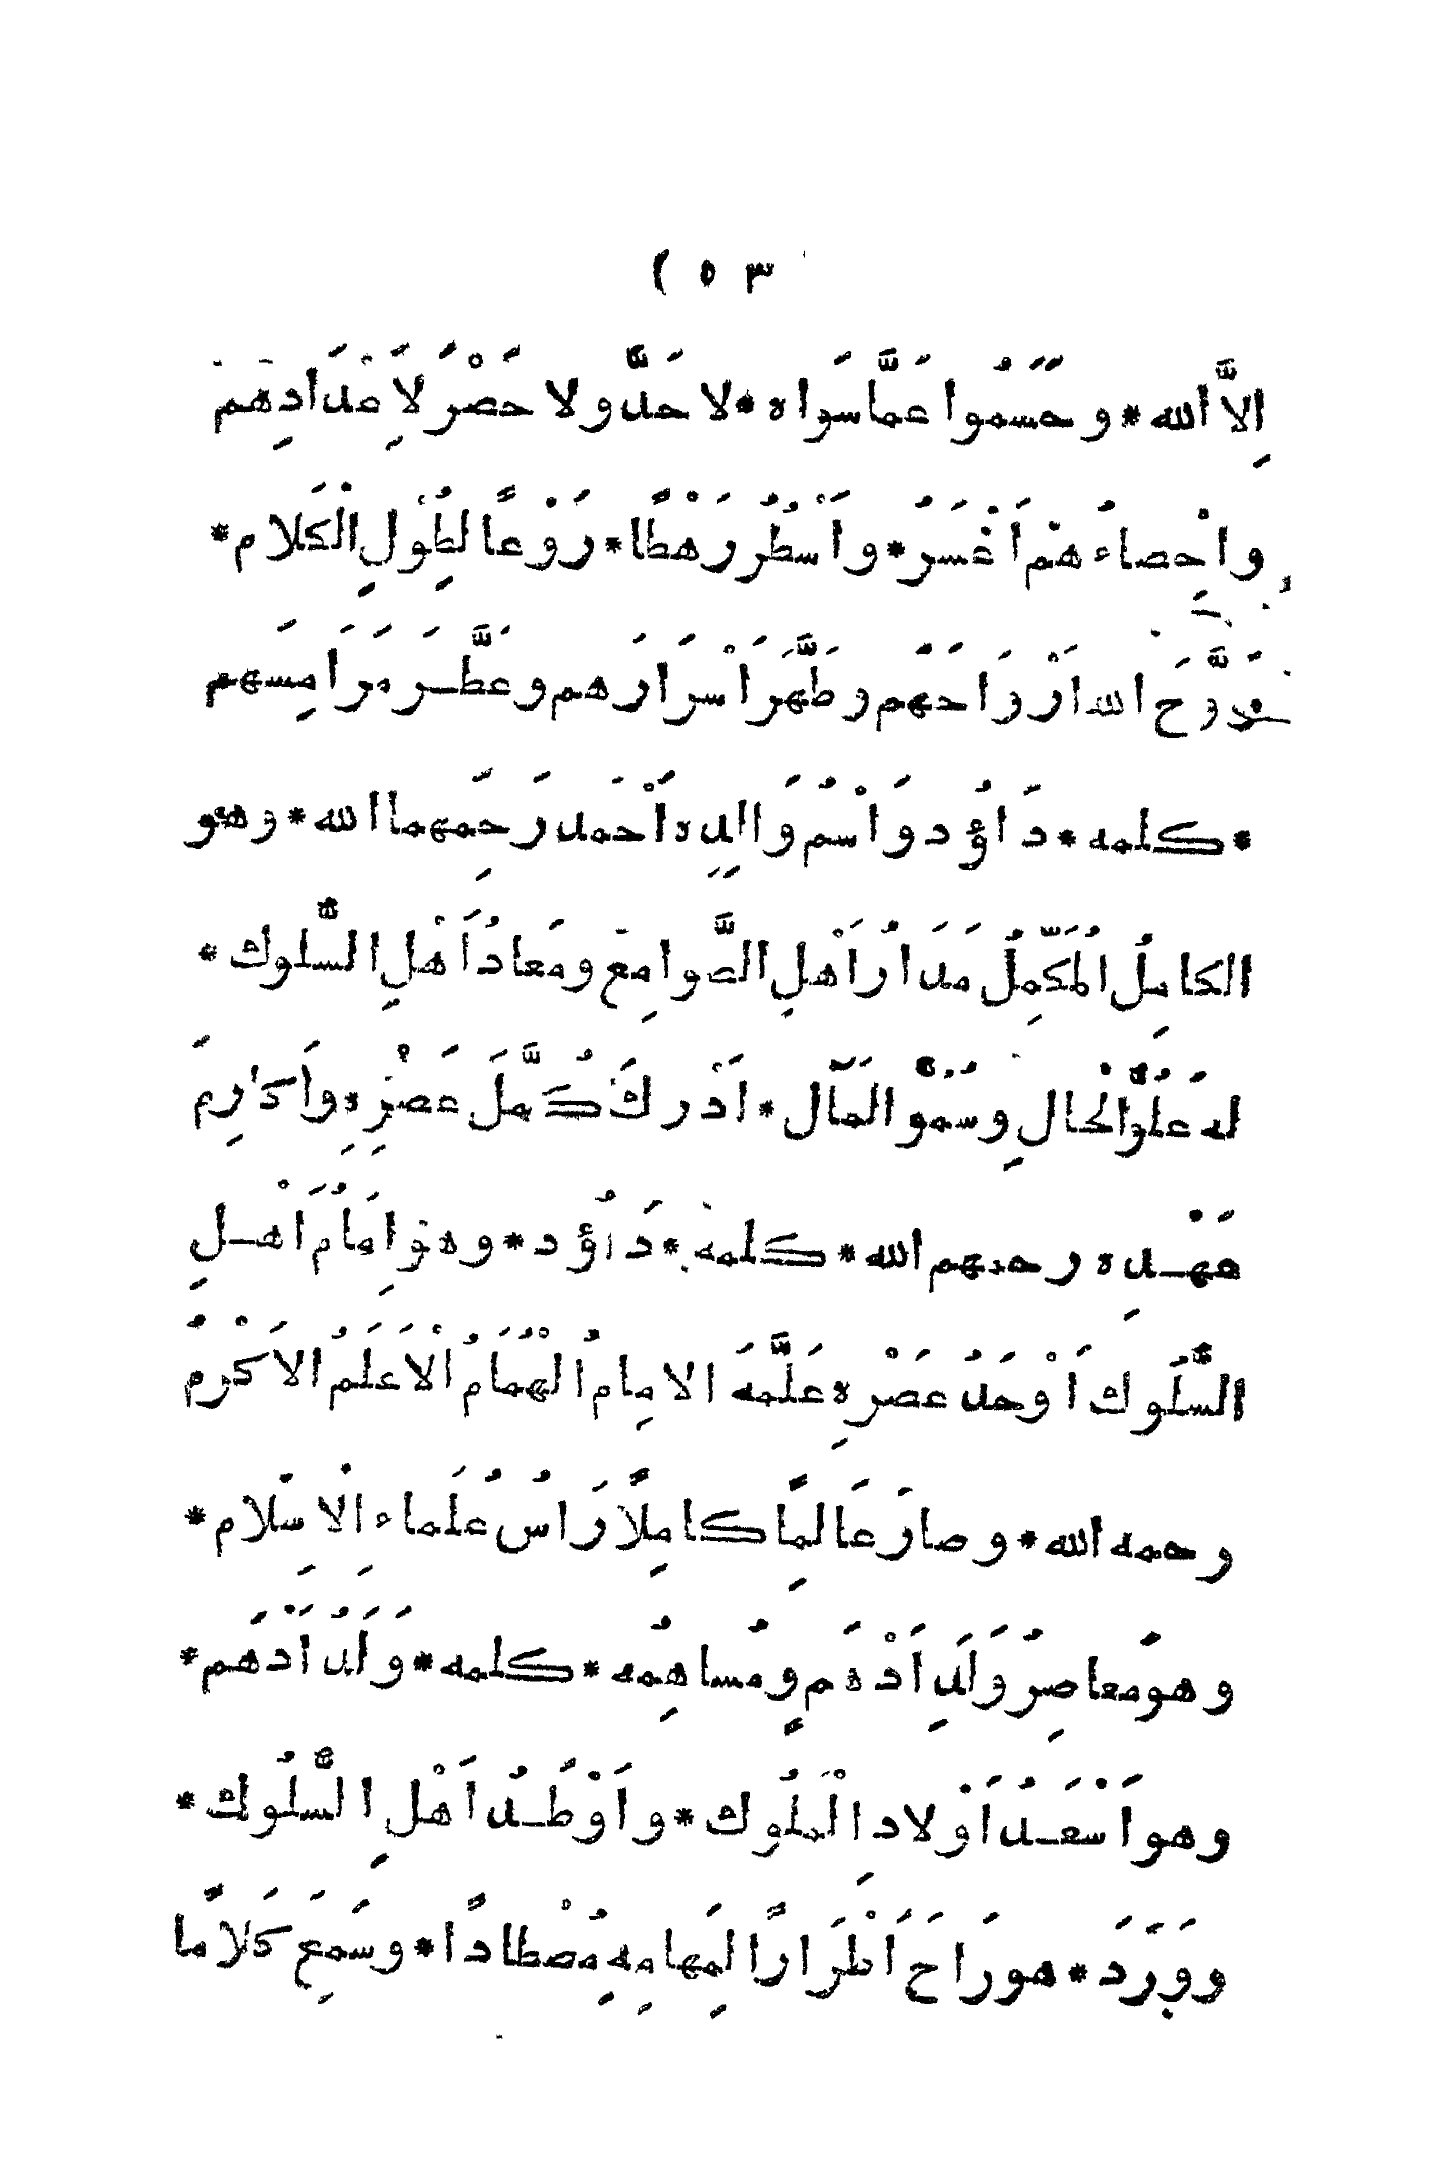 ٥٣ (
اِلَّا اللّٰه * و حسموا عَمَّا سَوَاه * لا حَدَّ ولا حَصْرَ لِاَعْدَادِهِمْ
واحْصاءُ هُمْ اَعْسَرُ * واَسْطُرُ رَهْطًا * رَوْعًا لِطُوْلِ الْكَلام *
رَوَّحَ اللّٰه اَرْوَاحَهُم وطَهَّرَ اَسْرَارَهم وعَطَّر مَرَامِسَهم
* كلمه * دَاؤُد واَسْمُ وَالِدِه اَحْمَد رَحِمَهما اللّٰه * وهو
الكامِلُ المُكَمِّلُ مَدَارُ اَهْلِ الصَّوامِعِ ومَعادُ اَهْلِ السُّلوك *
له عُلُوُّ الْحالِ وسُمُوُّ المَآل * اَدْرَكَ كُمَّلَ عَصْرِهِ واَكارِمَ
عَهْدِه رحمهم اللّٰه * كلمه * دَاؤُد * وهو اِمَامُ اَهْلِ
السُّلُوك اَوْحَدُ عَصْرِهِ عَلَّمَهُ الامِامُ الْهُمَامُ الْاَعْلَمُ الاَكْرَمُ
رحمه اللّٰه * وصارَ عَالِمًا كامِلًا رَاسُ عُلَماءِ الْاِسْلام *
وهو مُعاصِرُ وَلَدِ اَدْهَم ومُساهِمُه * كلمه * وَلَدُ اَدْهَم *
وهو اَسْعَدُ اَوْلادِ الْمُلُوك * واَوْطَدُ اَهْلِ السُّلُوك *
ووَرَدَ * هو رَاحَ اَطْرَارًا لِمَهامِهِ مُصْطادًا * وسَمِعَ كَلامًا